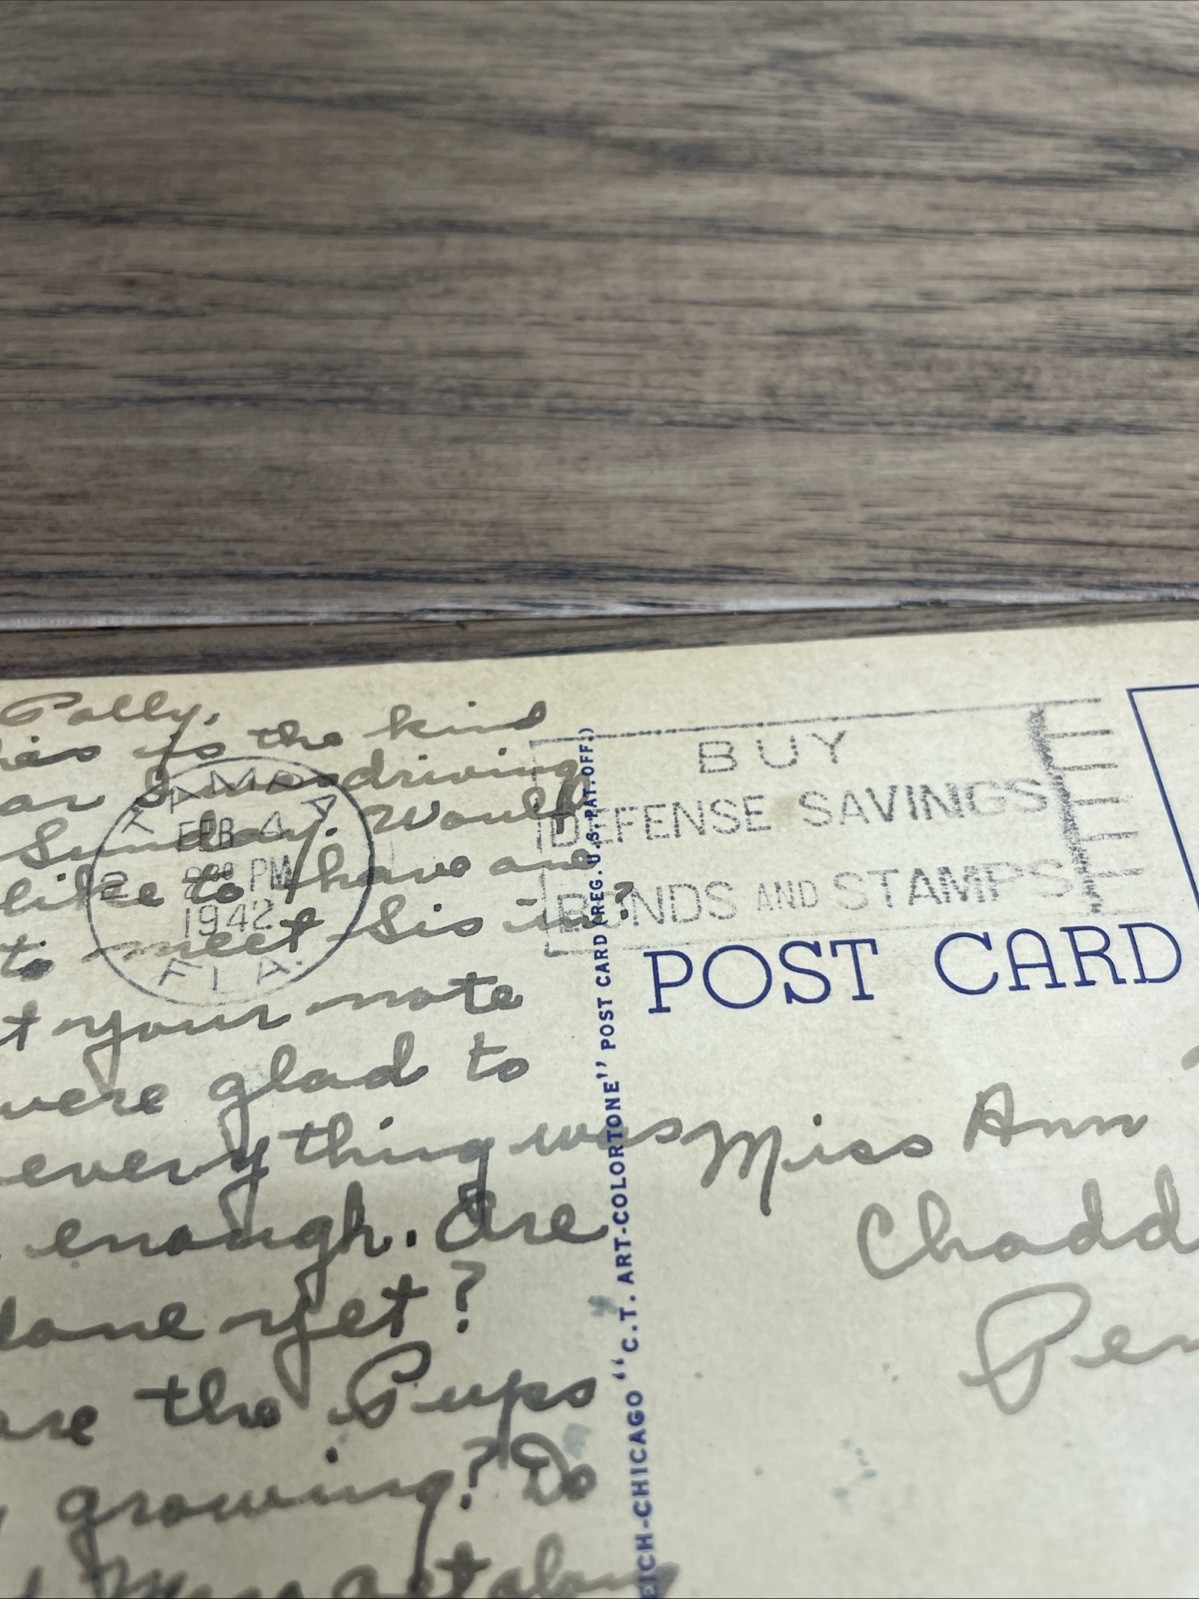 Polly,
his is the kind
ar Sis driving
Sunday. Would
like to have one
to meet Sis in?
t your note
were glad to
everything was
enough. Are
done yet?
are the Pups
growing? Do
get along
TAMPA
FEB 4
2 PM
1942
FLA.
BUY
DEFENSE SAVINGS
BONDS AND STAMPS
POST CARD
EICH-CHICAGO "C.T. ART-COLORTONE" POST CARD (REG. U.S. PAT. OFF.)
Miss Ann
Chadd
Pen